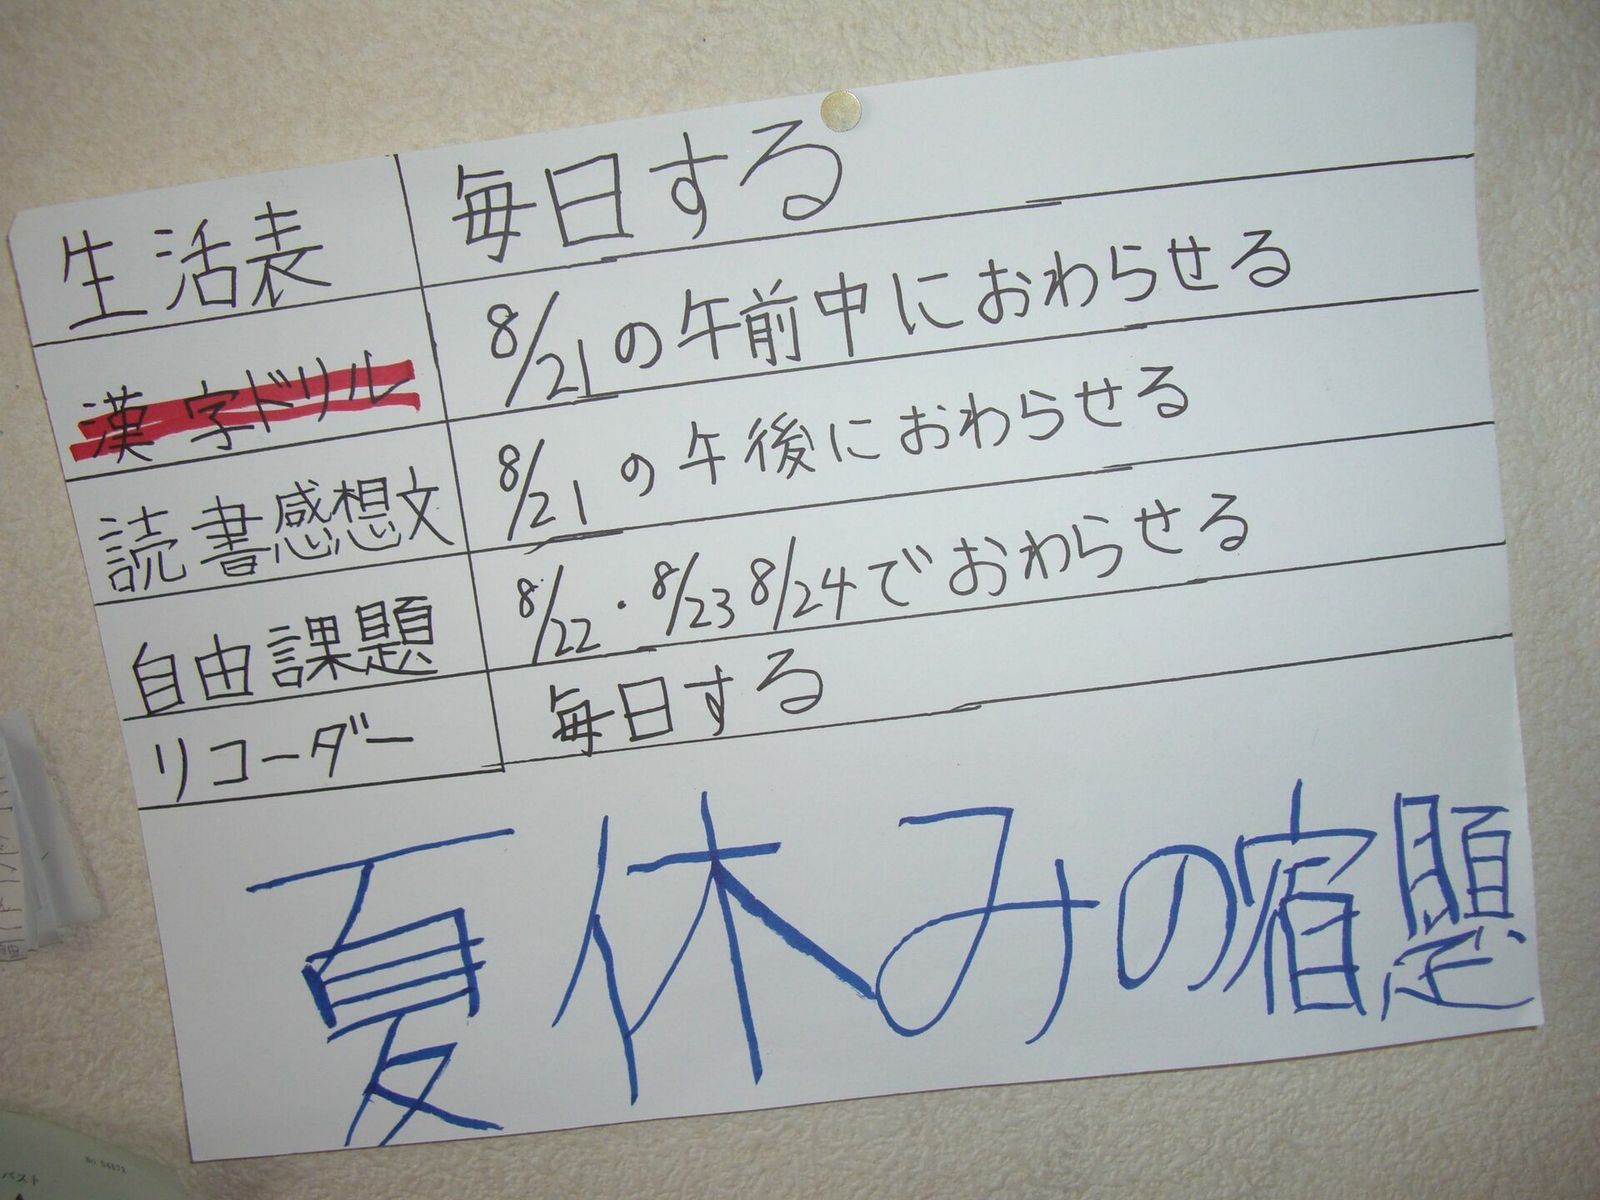 生活表 毎日する
漢字ドリル 8/21の午前中におわらせる
読書感想文 8/21の午後におわらせる
自由課題 8/22・8/23 8/24でおわらせる
リコーダー 毎日する
夏休みの宿題